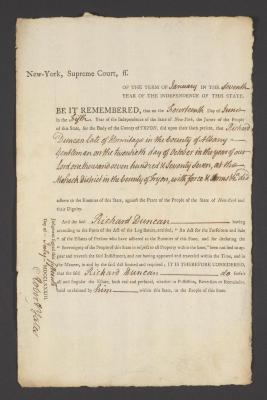 New-York, Supreme Court, ss.
OF THE TERM OF January IN THE Seventh
YEAR OF THE INDEPENDENCE OF THIS STATE.
BE IT REMEMBERED, that on the Fourteenth Day of June
In the Fifth Year of the Independence of the State of New-York, the Jurors of the People
of this State, for the Body of the County of TRYON, did upon their Oath present, that Richard
Duncan late of Hermitage in the County of Albany
Gentleman on the twentieth day of October in the year of our
Lord one thousand seven hundred & seventy seven, at the
Mohawk District in the County of Tryon, with force & Arms &c did
adhere to the Enemies of this State, against the Peace of the People of the State of New-York and
their Dignity.
And the said Richard Duncan having
according to the Form of the Act of the Legislature, entitled, "An Act for the Forfeiture and Sale
"of the Estates of Persons who have adhered to the Enemies of this State, and for declaring the
"Sovereignty of the People of this State in respect to all Property within the same," been
and traversed the said Indictment, and not having appeared and traversed within the Time, and in
the Manner, in and by the said Act limited and required; IT IS THEREFORE CONSIDERED,
that the said Richard Duncan do forfeit
all and singular the Estate, both real and personal, whether in Possession, Reversion or Remainder,
held or claimed by him within this State, to the People of this State.
Judgment signed this
Day of July MDCCLXXXIII.
Robert Yates